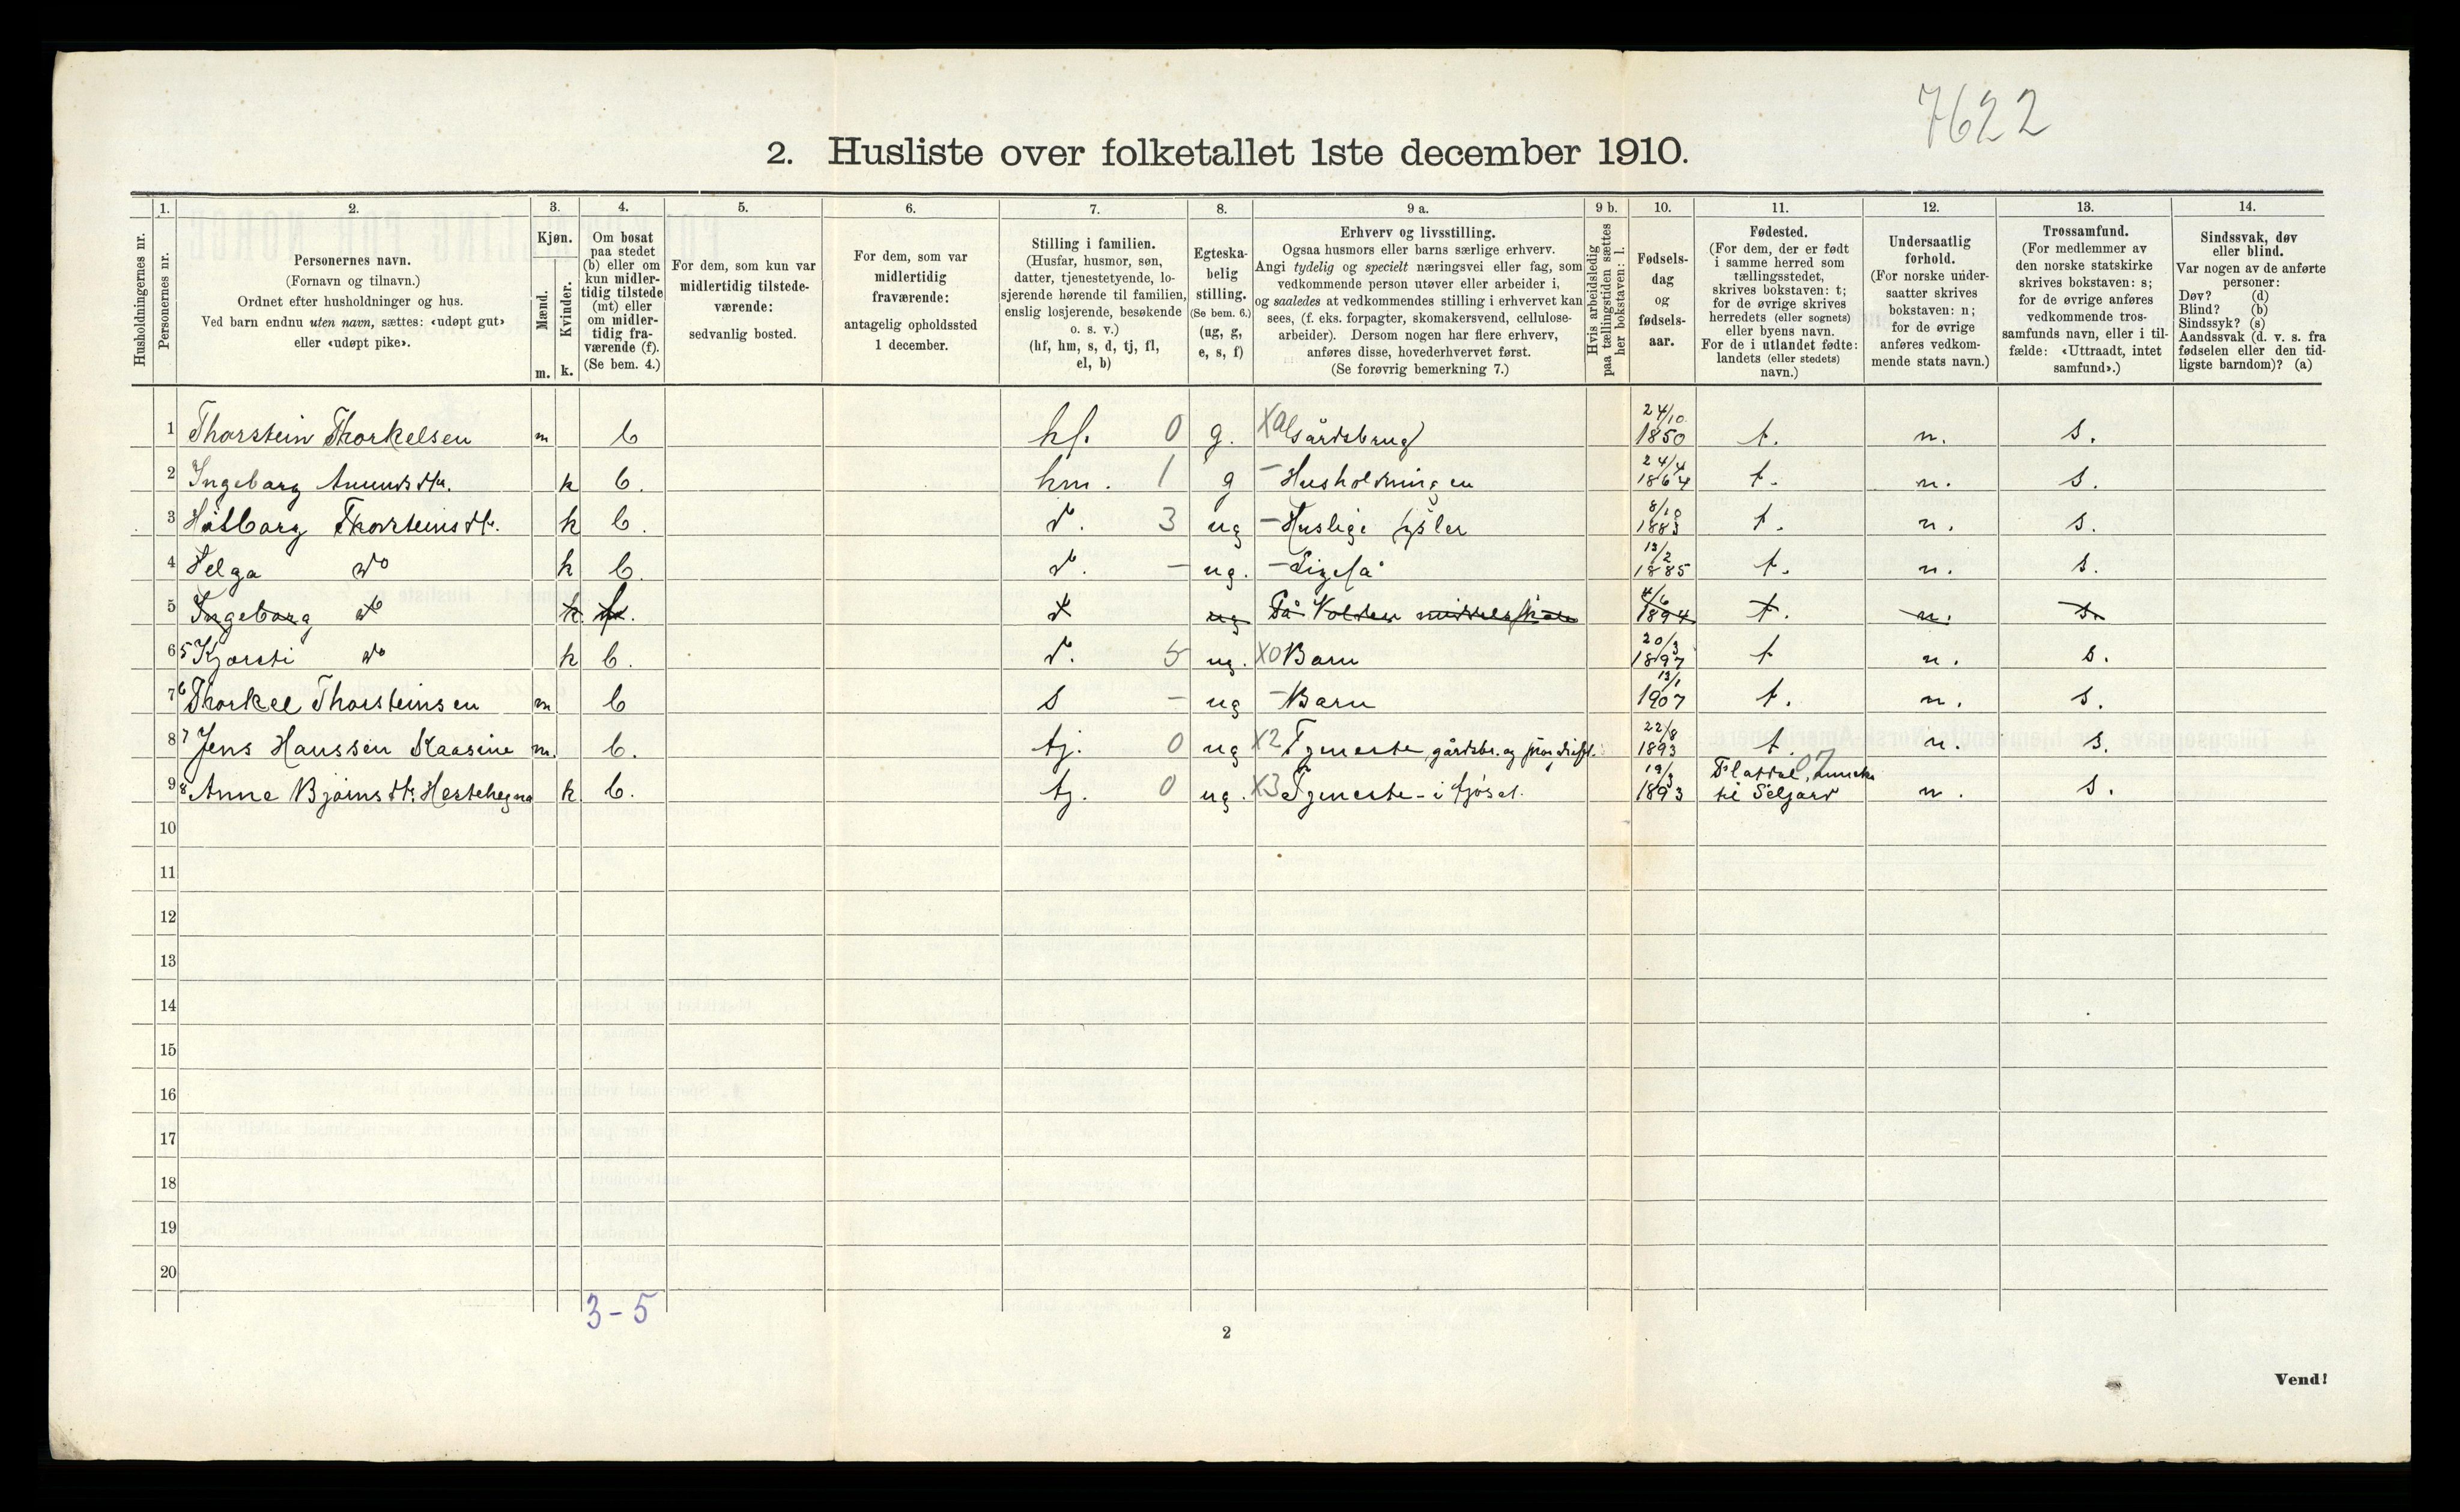 7622
2. Husliste over folketallet 1ste december 1910.
Husholdningernes nr.
1.
Personernes nr.
2.
Personernes navn.
(Fornavn og tilnavn.)
Ordnet efter husholdninger og hus.
Ved barn endnu uten navn, sættes: «udøpt gut»
eller «udøpt pike».
3.
Kjøn.
Mænd.
Kvinder.
m. k.
4.
Om bosat
paa stedet
(b) eller om
kun midler-
tidig tilstede
(mt) eller
om midler-
tidig fra-
værende (f).
(Se bem. 4.)
5.
For dem, som kun var
midlertidig tilstede-
værende:
sedvanlig bosted.
6.
For dem, som var
midlertidig
fraværende:
antagelig opholdssted
1 december.
7.
Stilling i familien.
(Husfar, husmor, søn,
datter, tjenestetyende, lo-
sjerende hørende til familien,
enslig losjerende, besøkende
o. s. v.)
(hf, hm, s, d, tj, fl,
el, b)
8.
Egteska-
belig
stilling.
(Se bem. 6.)
(ug, g,
e, s, f)
9 a.
Erhverv og livsstilling.
Ogsaa husmors eller barns særlige erhverv.
Angi tydelig og specielt næringsvei eller fag, som
vedkommende person utøver eller arbeider i,
og saaledes at vedkommendes stilling i erhvervet kan
sees, (f. eks. forpagter, skomakersvend, cellulose-
arbeider). Dersom nogen har flere erhverv,
anføres disse, hovederhvervet først.
(Se forøvrig bemerkning 7.)
9 b.
Hvis arbeidsledig
paa tællingstiden sættes
her bokstaven: l.
10.
Fødsels-
dag
og
fødsels-
aar.
11.
Fødested.
(For dem, der er født
i samme herred som
tællingsstedet,
skrives bokstaven: t;
for de øvrige skrives
herredets (eller sognets)
eller byens navn.
For de i utlandet fødte:
landets (eller stedets)
navn.)
12.
Undersaatlig
forhold.
(For norske under-
saatter skrives
bokstaven: n;
for de øvrige
anføres vedkom-
mende stats navn.)
13.
Trossamfund.
(For medlemmer av
den norske statskirke
skrives bokstaven: s;
for de øvrige anføres
vedkommende tros-
samfunds navn, eller i til-
fælde: «Uttraadt, intet
samfund».)
14.
Sindssvak, døv
eller blind.
Var nogen av de anførte
personer:
Døv? (d)
Blind? (b)
Sindssyk? (s)
Aandssvak (d. v. s. fra
fødselen eller den tid-
ligste barndom)? (a)
1 Thorstein Thorkelsen m b hf. 0 g. Gårdsbrug 24/10 1850 t. n. s.
2 Ingeborg Amundsdtr. k b. hm. 1 g - Husholdningen 24/4 1864 t. n. s.
3 Thorsteinsdtr. k b. d. 3 ug - Huslige sysler 8/10 1883 t. n. s.
4 Helga do k b. d. - ug. - Ligeså 13/2 1885 t. n. s.
5 Ingeborg do k f. d ug På Volden middelskole 4/6 1894 t. n. s.
6 5 Kjorsti do k b. d. 5 ug. X0 Barn 20/3 1897 t n. s.
7 6 Thorkel Thorsteinsen m b s - ug - Barn 13/1 1907 t. n. s.
8 7 Jens Hanssen Kaasine m. b. tj. 0 ug X2 Tjeneste, gårdsbr. og 22/8 1893 t. n. s.
9 8 Anne Bjørnsdtr. Hestehegna k b. tj. 0 ug. X3 Tjeneste - i fjøset. 19/3 1893 Flatdal, anneks til Seljord 07 n. s.
10
11
12
13
14
15
16
17
18
19
20
3-5
2
Vend!